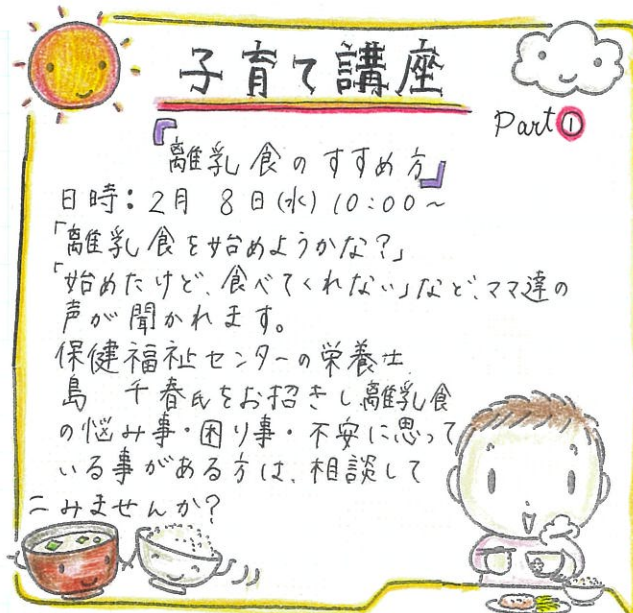 子育て講座
Part①
『離乳食のすすめ方』
日時:2月 8日(水)10:00~
「離乳食を始めようかな?」
「始めたけど、食べてくれない」など、ママ達の
声が聞かれます。
保健福祉センターの栄養士
島 千春氏をお招きし離乳食
の悩み事・困り事・不安に思って
いる事がある方は、相談して
みませんか?